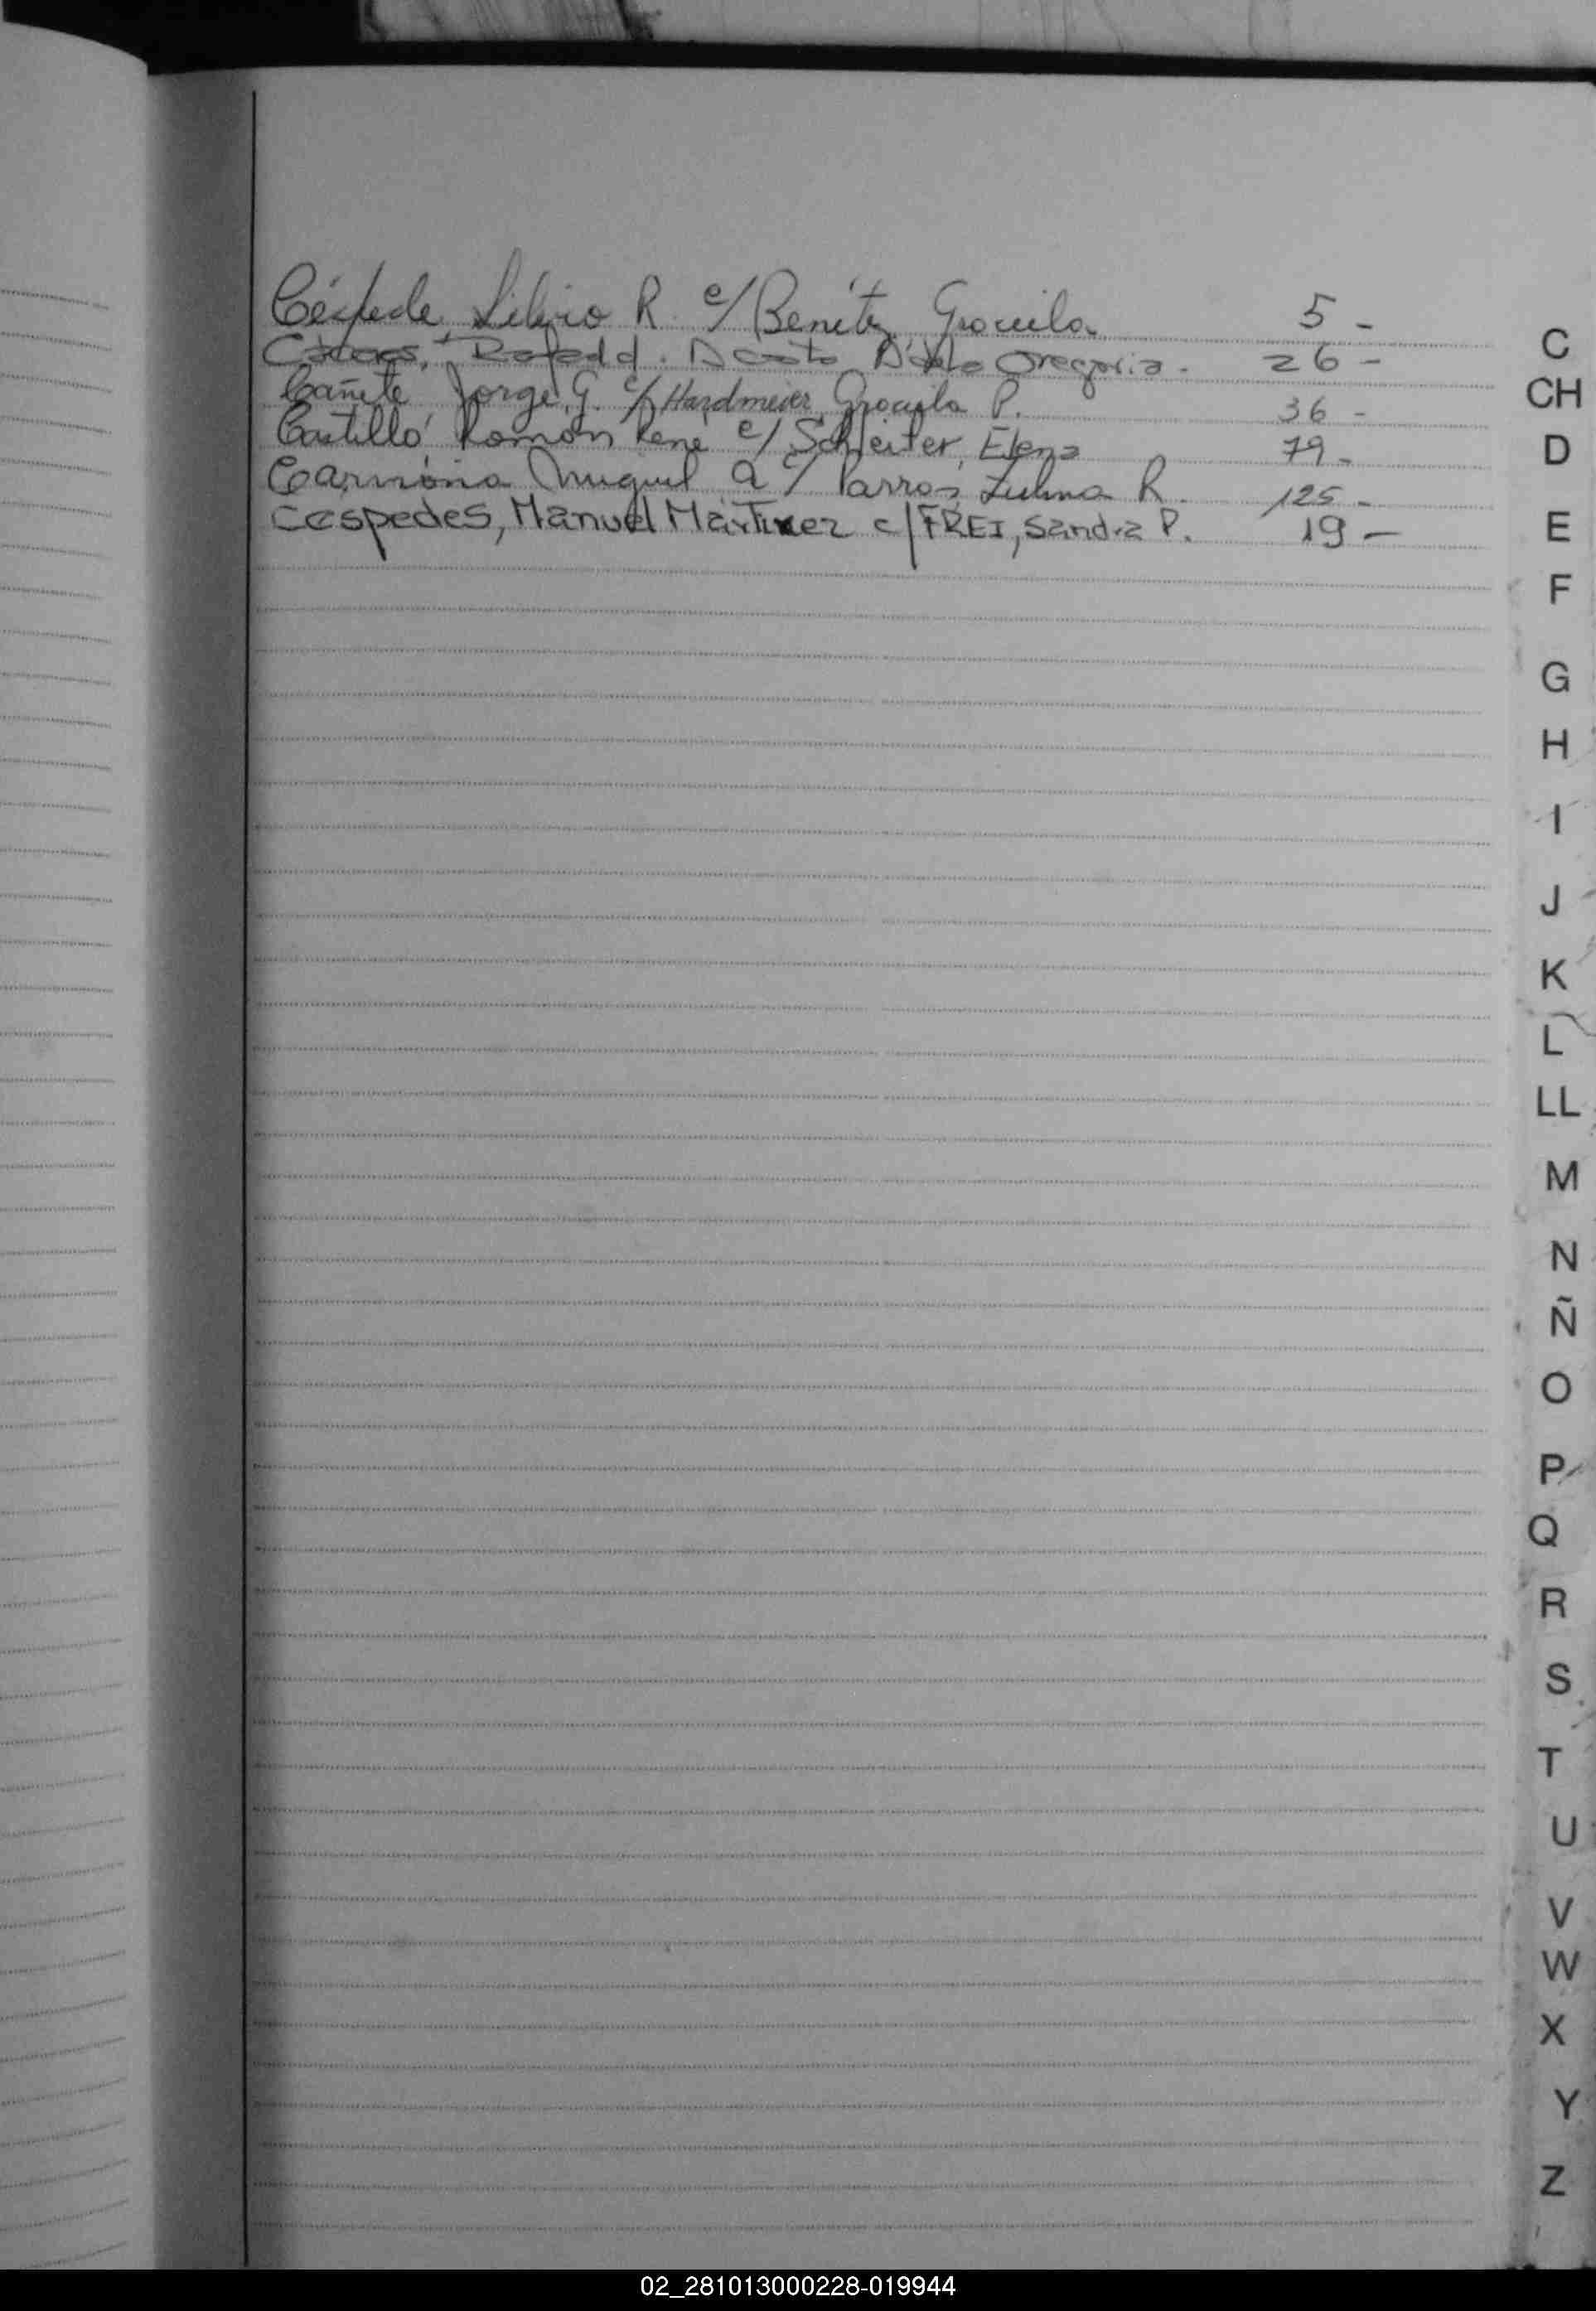 Céspede Silvio R. c/ Benítez Graciela 5 -
Rafael d. Acosta Gregoria - 26 -
Cañete Jorge G. c/ Hardmeier, Graciela P. 36 -
Castillo, Ramón René c/ Schleiter, Elena 79 -
Carmona Miguel A c/ Parras Zulma R. 125 -
Cespedes, Manuel Martinez c/ FREI, Sandra P. 19 -
C
CH
D
E
F
G
H
I
J
K
L
LL
M
N
Ñ
O
P
Q
R
S
T
U
V
W
X
Y
Z
02_281013000228-019944